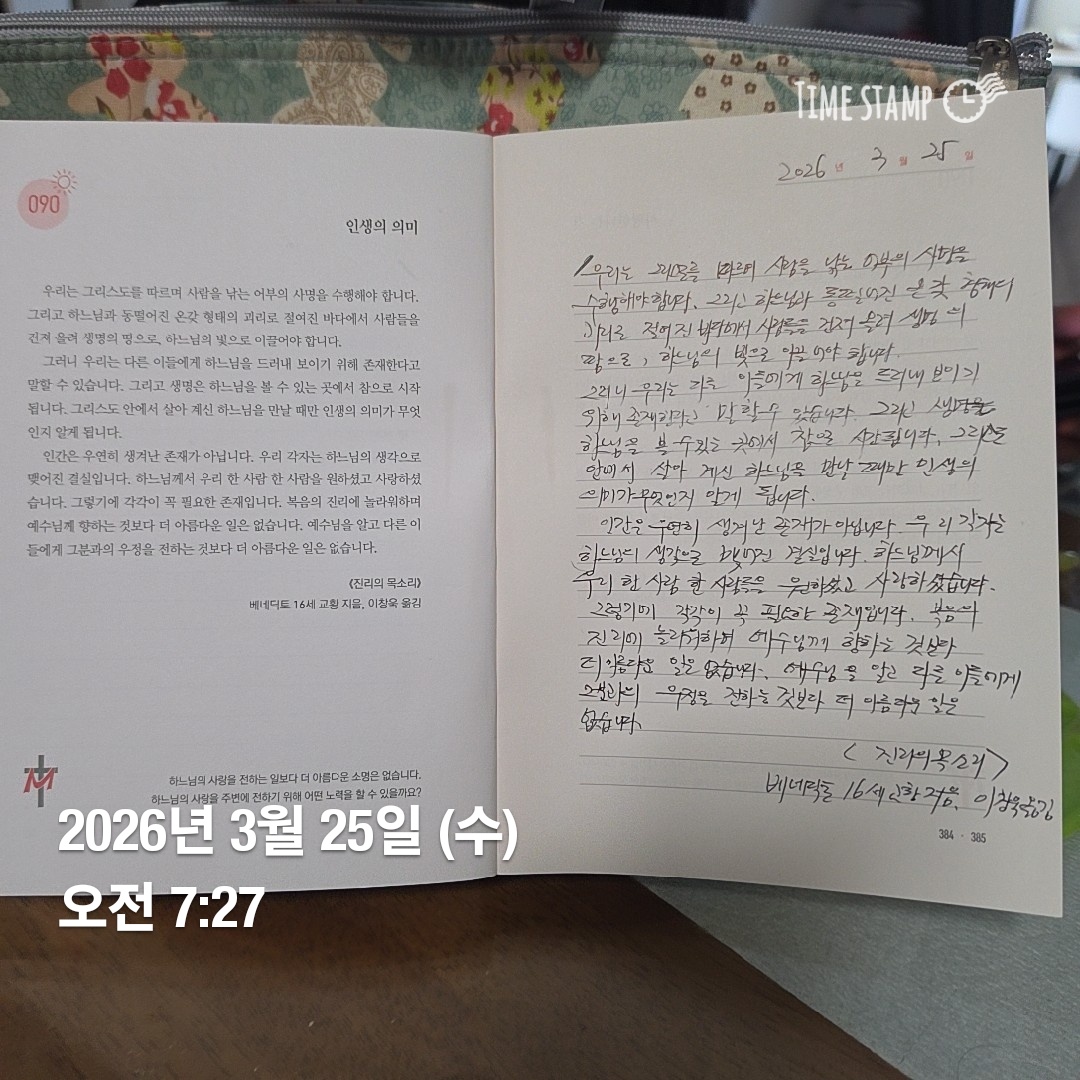 TIME STAMP
090
인생의 의미
우리는 그리스도를 따르며 사람을 낚는 어부의 사명을 수행해야 합니다.
그리고 하느님과 동떨어진 온갖 형태의 괴리로 절여진 바다에서 사람들을
건져 올려 생명의 땅으로, 하느님의 빛으로 이끌어야 합니다.
그러니 우리는 다른 이들에게 하느님을 드러내 보이기 위해 존재한다고
말할 수 있습니다. 그리고 생명은 하느님을 볼 수 있는 곳에서 참으로 시작
됩니다. 그리스도 안에서 살아 계신 하느님을 만날 때만 인생의 의미가 무엇
인지 알게 됩니다.
인간은 우연히 생겨난 존재가 아닙니다. 우리 각자는 하느님의 생각으로
맺어진 결실입니다. 하느님께서 우리 한 사람 한 사람을 원하셨고 사랑하셨
습니다. 그렇기에 각각이 꼭 필요한 존재입니다. 복음의 진리에 놀라워하며
예수님께 향하는 것보다 더 아름다운 일은 없습니다. 예수님을 알고 다른 이
들에게 그분과의 우정을 전하는 것보다 더 아름다운 일은 없습니다.
《진리의 목소리》
베네딕토 16세 교황 지음, 이창욱 옮김
하느님의 사랑을 전하는 일보다 더 아름다운 소명은 없습니다.
하느님의 사랑을 주변에 전하기 위해 어떤 노력을 할 수 있을까요?
2026년 3월 25일
우리는 그리스도를 따르며 사람을 낚는 어부의 사명을
수행해야 합니다. 그리고 하느님과 동떨어진 온갖 형태의
괴리로 절여진 바다에서 사람들을 건져 올려 생명의
땅으로, 하느님의 빛으로 이끌어야 합니다.
그러니 우리는 다른 이들에게 하느님을 드러내 보이기
위해 존재한다고 말할 수 있습니다. 그리고 생명은
하느님을 볼 수 있는 곳에서 참으로 시작됩니다. 그리스도
안에서 살아 계신 하느님을 만날 때만 인생의
의미가 무엇인지 알게 됩니다.
인간은 우연히 생겨난 존재가 아닙니다. 우리 각자는
하느님의 생각으로 맺어진 결실입니다. 하느님께서
우리 한 사람 한 사람을 원하셨고 사랑하셨습니다.
그렇기에 각각이 꼭 필요한 존재입니다. 복음의
진리에 놀라워하며 예수님께 향하는 것보다
더 아름다운 일은 없습니다. 예수님을 알고 다른 이들에게
그분과의 우정을 전하는 것보다 더 아름다운 일은
없습니다.
〈진리의 목소리〉
베네딕토 16세 교황 지음, 이창욱 옮김
384 · 385
2026년 3월 25일 (수)
오전 7:27